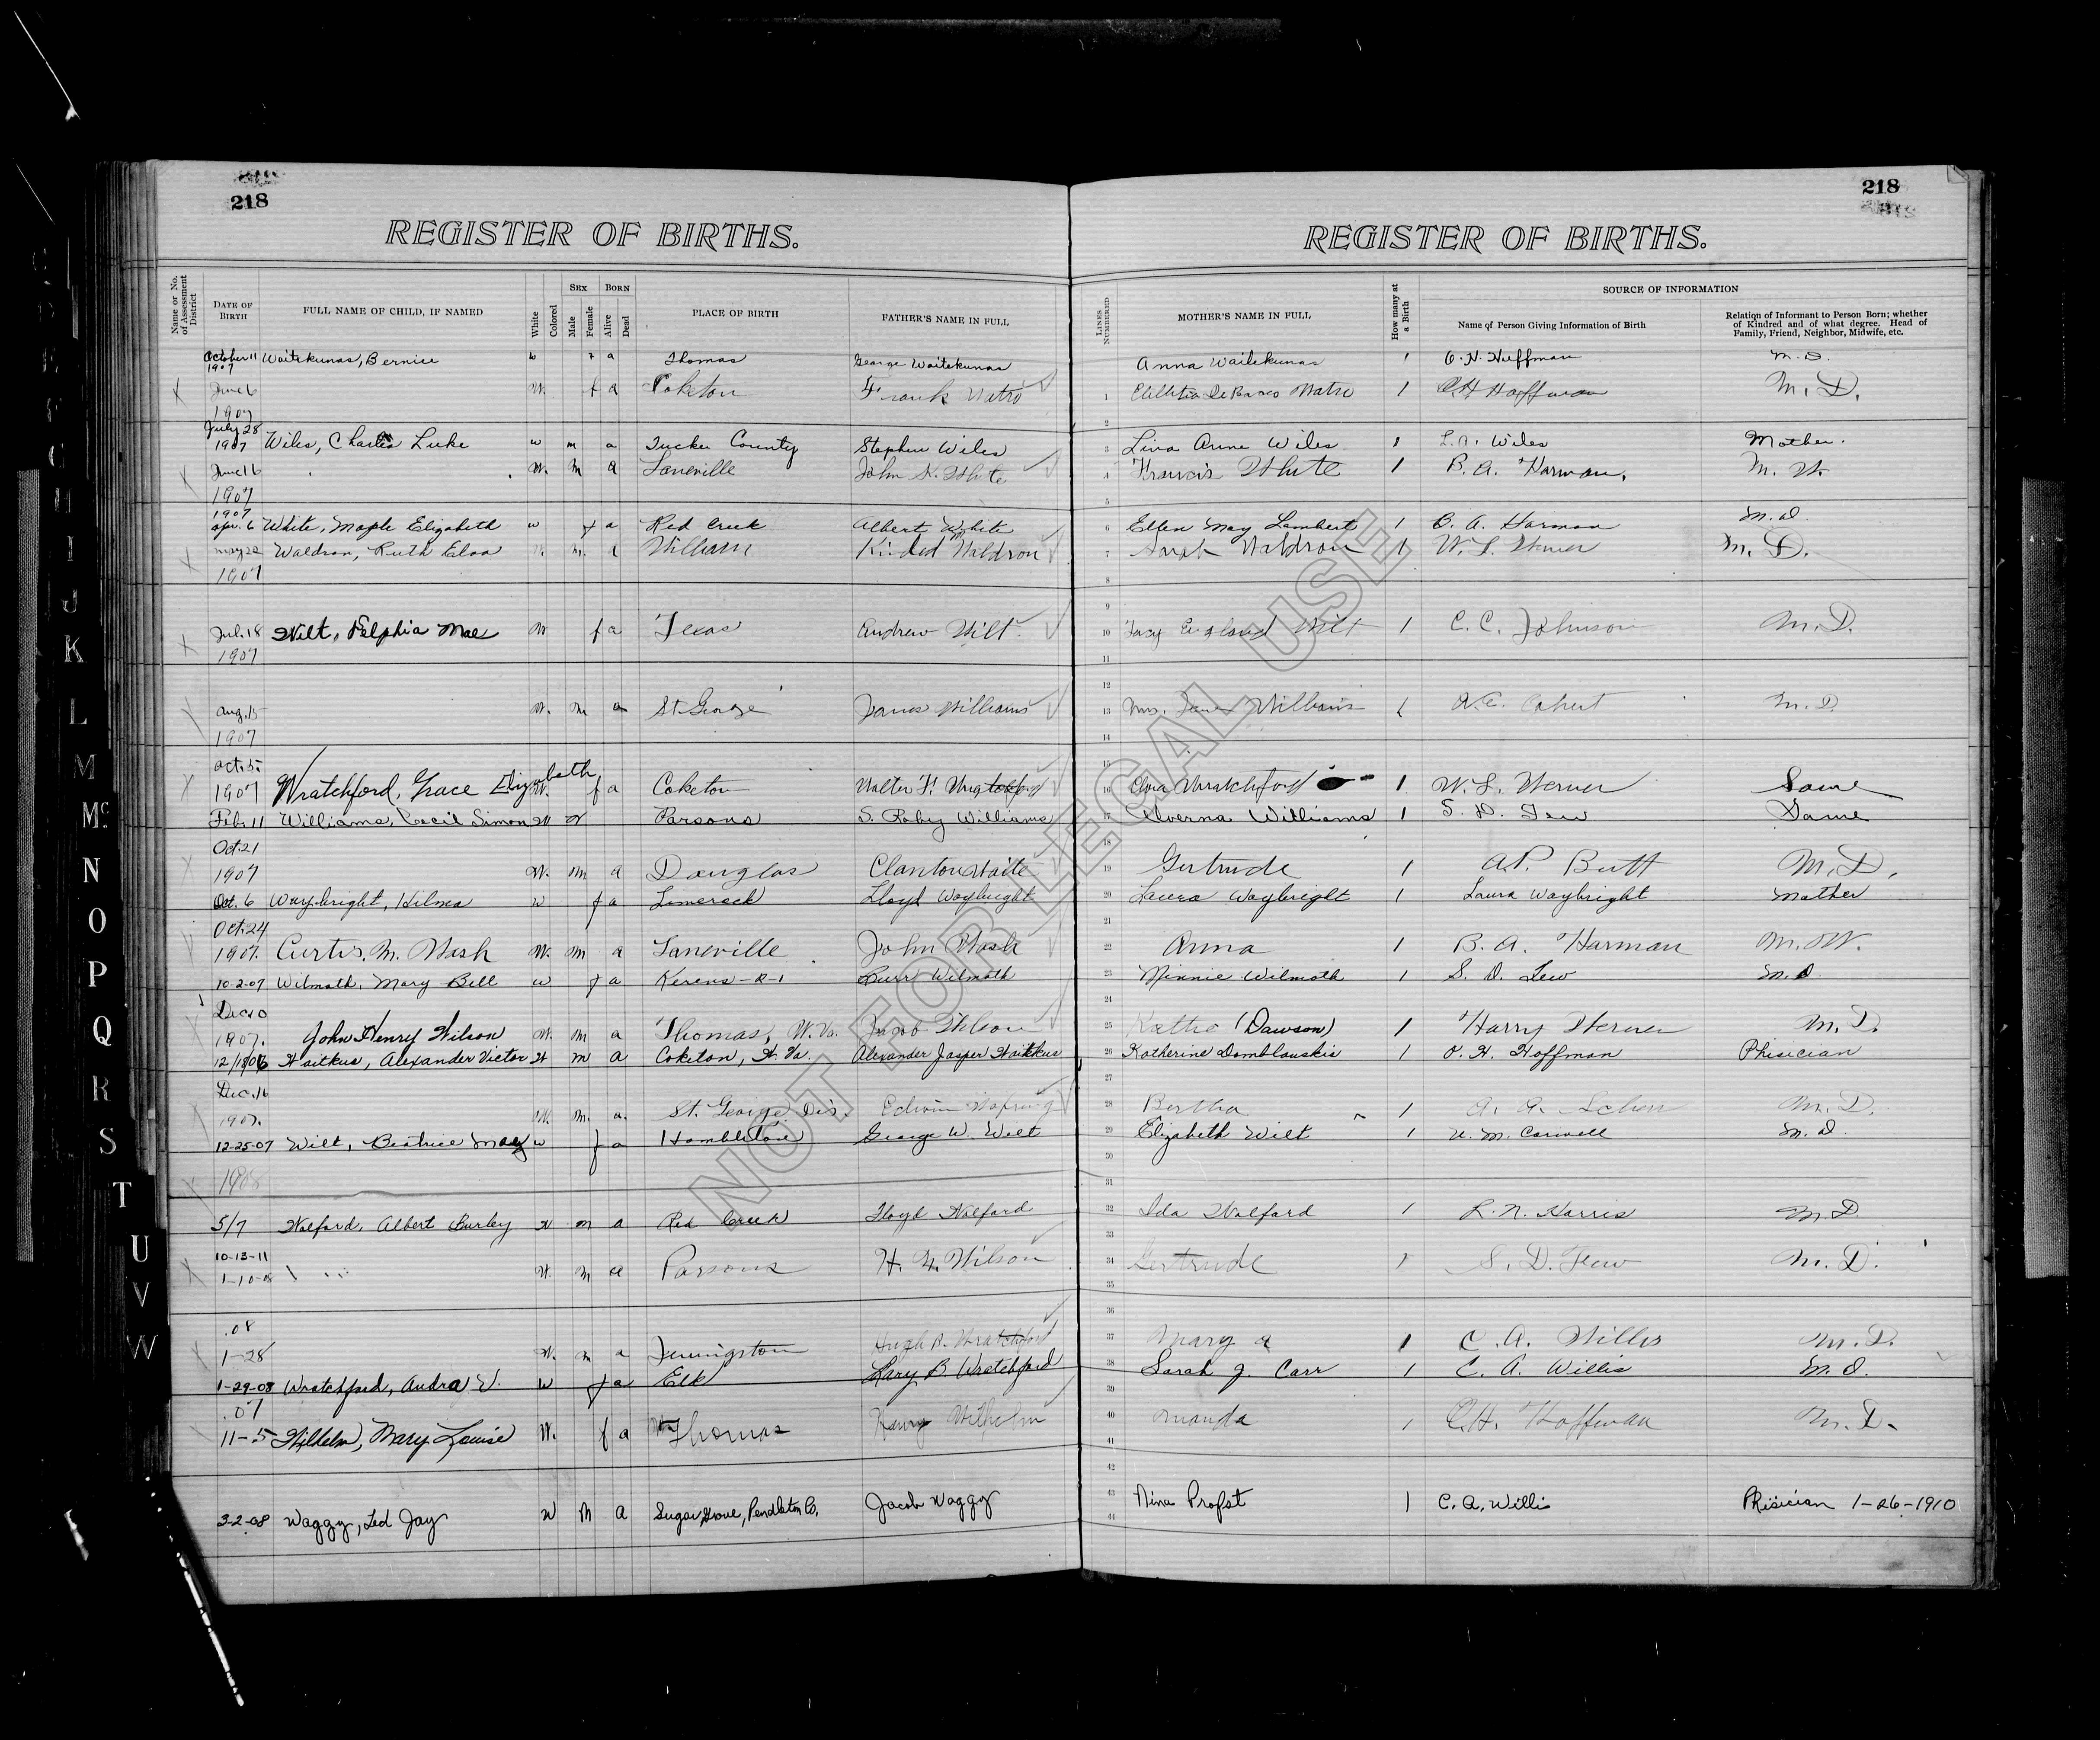 218
REGISTER OF BIRTHS.
218
REGISTER OF BIRTHS.
Name or No. of Assessment District
DATE OF BIRTH
FULL NAME OF CHILD, IF NAMED
White
Colored
SEX
Male
Female
BORN
Alive
Dead
PLACE OF BIRTH
FATHER'S NAME IN FULL
LINES NUMBERED
MOTHER'S NAME IN FULL
How many at a Birth
SOURCE OF INFORMATION
Name of Person Giving Information of Birth
Relation of Informant to Person Born; whether of Kindred and of what degree. Head of Family, Friend, Neighbor, Midwife, etc.
October 11 1907 Waitekunas, Bernice w f a Thomas George Waitekunas Anna Waitekunas 1 O. H. Hoffman M.D.
X June 6 1907 W. f a Coketon Frank Natro 1 Natro 1 O.H Hoffman M.D.
July 28 1907 Wiles, Charles Luke w m a Tucker County Stephen Wiles 3 Lina Anne Wiles 1 L.A. Wiles Mother.
X June 16 1907 W. m a Laneville John K. White 4 Francis White 1 B. A. Harman, M. W.
1907 Apr. 6 White, Maple Elizabeth w f a Red Creek Albert White 6 Ellen May Lambert 1 B. A. Harman M.D.
X May 22 1907 Waldron, Ruth Elva W. m. a William Kinded Waldron 7 Sarah Waldron 1 W. L. Werner M. D.
X Jul. 18 1907 Wilt, Delphia Mae W f a Texas Andrew Wilt 10 England Wilt 1 C. C. Johnson M.D.
X Aug. 15 1907 W. m a St George James Williams 13 Mrs. James Williams 1 M.D.
X Oct. 5. 1907 Wratchford, Grace Elizabeth W. f a Coketon Walter F. 16 Wratchford 1 W. L. Werner Same
Feb. 11 Williams, Cecil Simon W Parsons S. Roby Williams 17 Alverna Williams 1 S. D. Few Same
X Oct. 21 1907 W. m a Douglas Clanton Waite 19 Gertrude 1 A.P. Butt M.D.
Oct. 6 Waybright, Wilma w f a Limerock Lloyd Waybright 20 Laura Waybright 1 Laura Waybright Mother
Oct. 24 1907. Curtis, M. Nash W. m a Laneville John Nash 22 Anna 1 B. A. Harman M.W.
10-2-07 Wilmoth, Mary Bell w f a Kerens-R-1 Burr Wilmoth 23 Minnie Wilmoth 1 S. D. Few M.D.
Dec. 10 1907. John Henry Wilson W. m a Thomas, W. Va. Jacob Wilson 25 Kathe (Dawson) 1 Harry Werner M.D.
12/18/06 Waitkus, Alexander Victor W m a Coketon, W. Va. Alexander Jasper Waitkus 26 Katherine Damblauskis 1 O. H. Hoffman Phisician
X Dec. 16 1907. W. m. a. St. George Dis. Edwin 28 Bertha 1 A. A. M.D.
12-25-07 Wilt, Beatrice May w f a Hambleton George W. Wilt 29 Elizabeth Wilt 1 M.D.
X 1908
5/7 Wolford, Albert Burley W m a Red Creek Floyd Wolford 32 Ida Wolford 1 R. N. Harris M.D.
10-13-11
X 1-10-8 W. m a Parsons H. W. Wilson 34 Gertrude 1 S. D. Few M.D.
.08
X 1-28 W. m a Jenningston Hugh B. Wratchford 37 Mary A 1 C. A. Willis M.D.
1-29-08 Wratchford, Audra V. w f a Elk Lary B Wratchford 38 Sarah J. Carr 1 C. A. Willis M.D.
.07
11-5 Wilhelm, Mary Louise W. f a Thomas Henry Wilhelm 40 Manda 1 O.H. Hoffman M.D.
3-2-08 Waggy, Led Jay W M a Sugar Grove, Pendleton Co. Jacob Waggy 43 Nina Propst 1 C. A. Willis Phisician 1-26-1910
NOT FOR LEGAL USE
I
J
K
L
M
Mc
N
O
P
Q
R
S
T
U
V
W